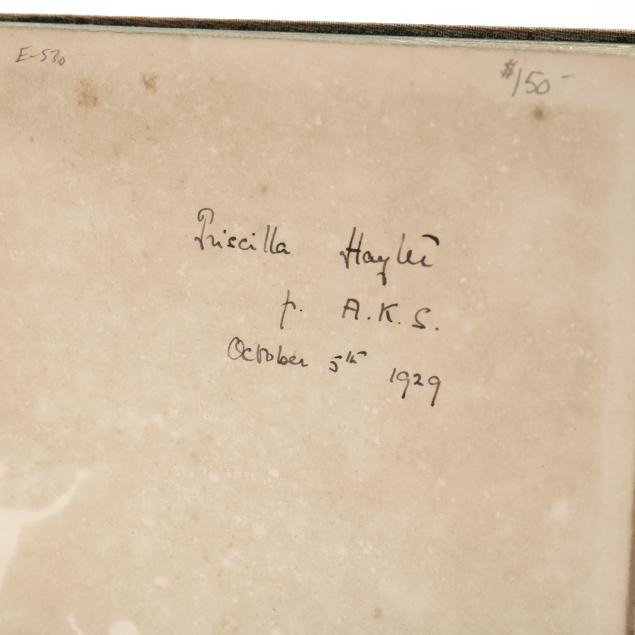 E-570
$150-
Priscilla Hayter
f. A.K.S.
October 5th 1929